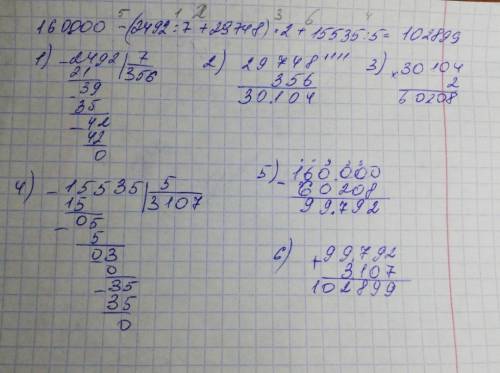 5 1 2 3 6 4
160000 - (2492 : 7 + 29748) · 2 + 15535 : 5 = 102899
1) - 2492 | 7
21 356
- 39
35
- 42
42
0
2) 29748
356
30.104
3) × 30104
2
60208
4) - 15535 | 5
15 3107
- 05
5
03
0
- 35
35
0
5) - 160.000
60208
99.792
6) + 99.792
3107
102899